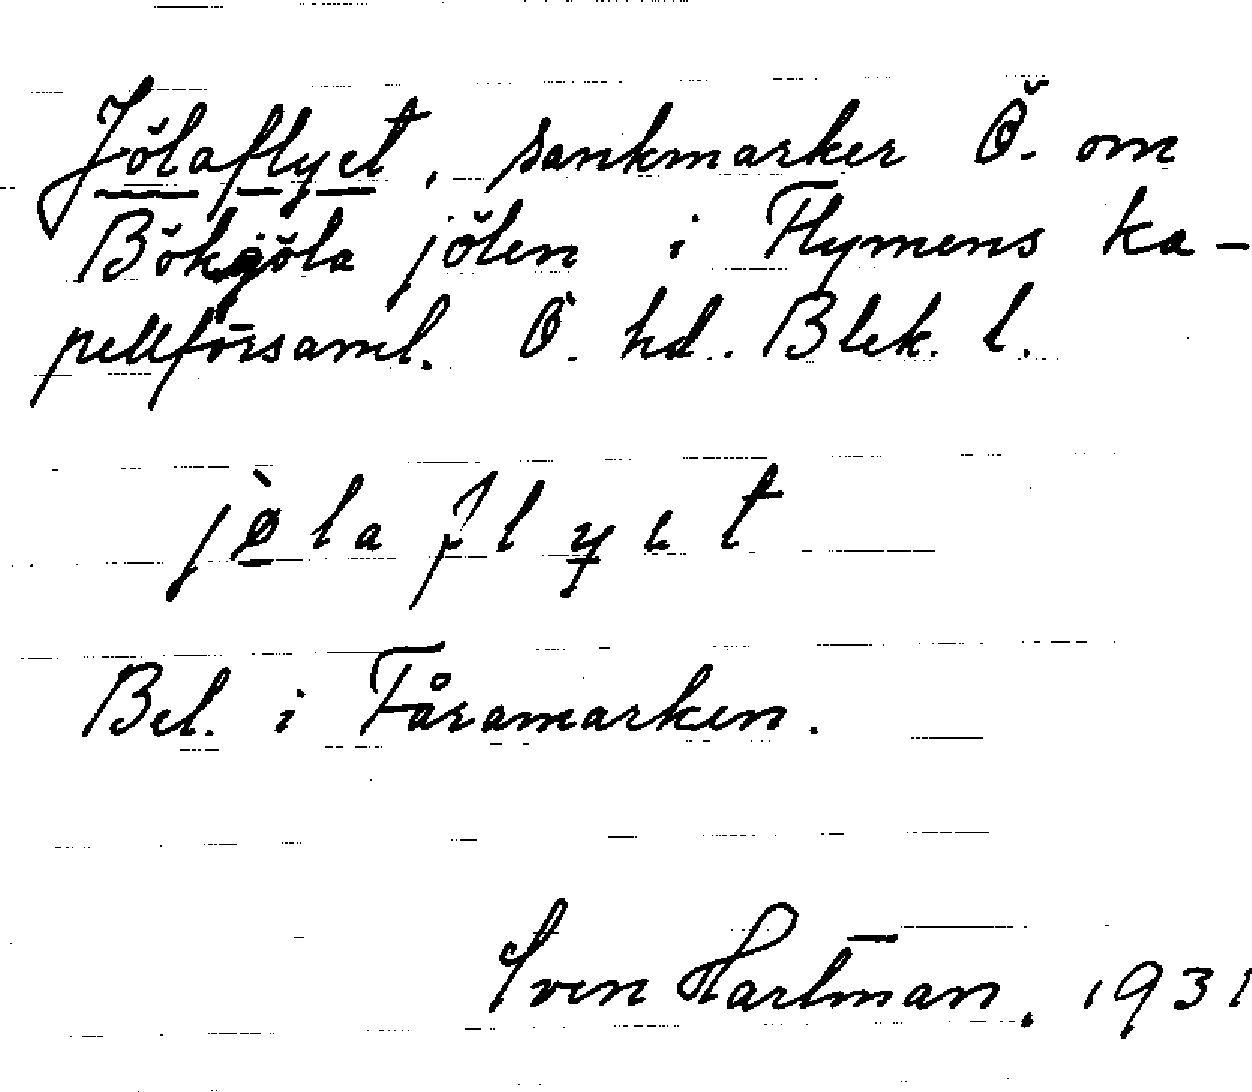 Jölaflyet, sankmarker Ö. om
Bökgöla jölen i Flymens ka-
pellförsaml. Ö. hd. Blek. l.
jøla flyet
Bel. i Fåramarken.
Sven Hartman. 1931